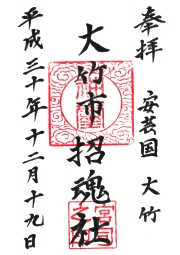 奉拝
安芸国 大竹
大竹市招魂社
平成三十年十二月十九日